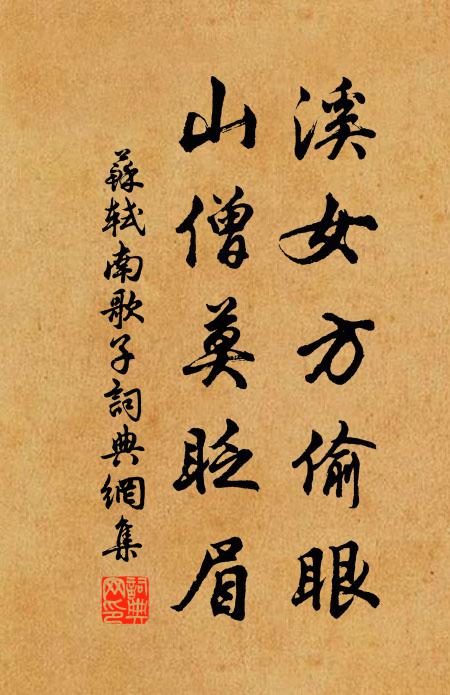 溪女方偷眼
山僧莫眨眉
蘇軾南歌子詞典網集
詞典網印